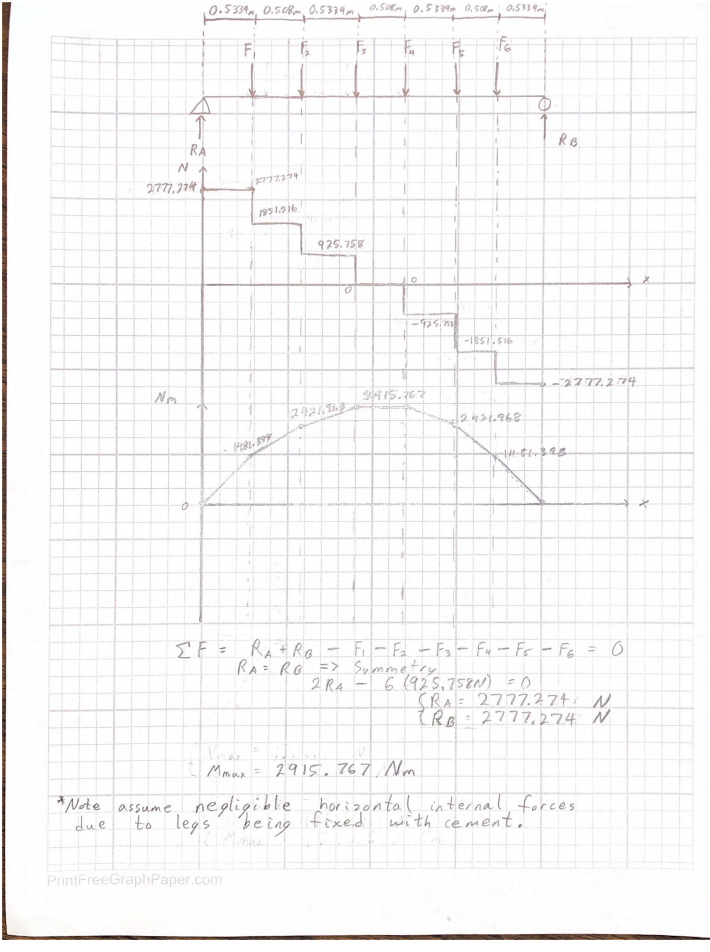 0.5339m 0.508m 0.5339m 0.508m 0.5339m 0.508m 0.5339m
F1 F2 F3 F4 F5 F6
RA
RB
N
2777.274 2777.274
1851.516
925.758
0 0 x
-925.758
-1851.516
-2777.274
Nm
2915.767
2421.968 2421.968
1481.398 1481.398
0 x
ΣF = RA + RB - F1 - F2 - F3 - F4 - F5 - F6 = 0
RA = RB => Symmetry
2RA - 6(925.758N) = 0
{ RA = 2777.274 N
{ RB = 2777.274 N
Mmax = 2915.767 Nm
*Note assume negligible horizontal internal forces
due to legs being fixed with cement.
PrintFreeGraphPaper.com